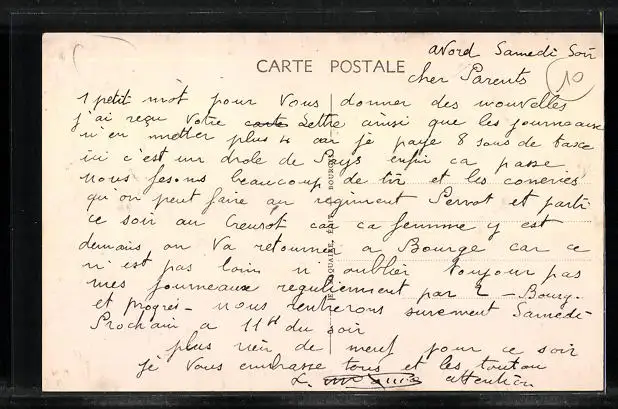 avord Samedi Soir
CARTE POSTALE
cher Parents
10
1 petit mot pour Vous donner des nouvelles
j'ai reçu Votre carte Lettre ainsi que les journeaux
n'en metter plus 4 car je paye 8 sous de taxe
ici c'est un drole de Pays enfin ca passe
nous fesons beaucoup de tir et les coneries
qu'on peut faire au regiment Perrot et parti
ce soir au Creusot car ca femme y est
demain on Va retourner a Bourge car ce
n'est pas loin n'oublier toujour pas
mes journeaux regulierment par 2 - Bourg.
et progrès - nous rentrerons surement Samedi
Prochain a 11H du soir
plus rien de neuf pour ce soir
je Vous embrasse tous et les toutou
attention
BOURGES